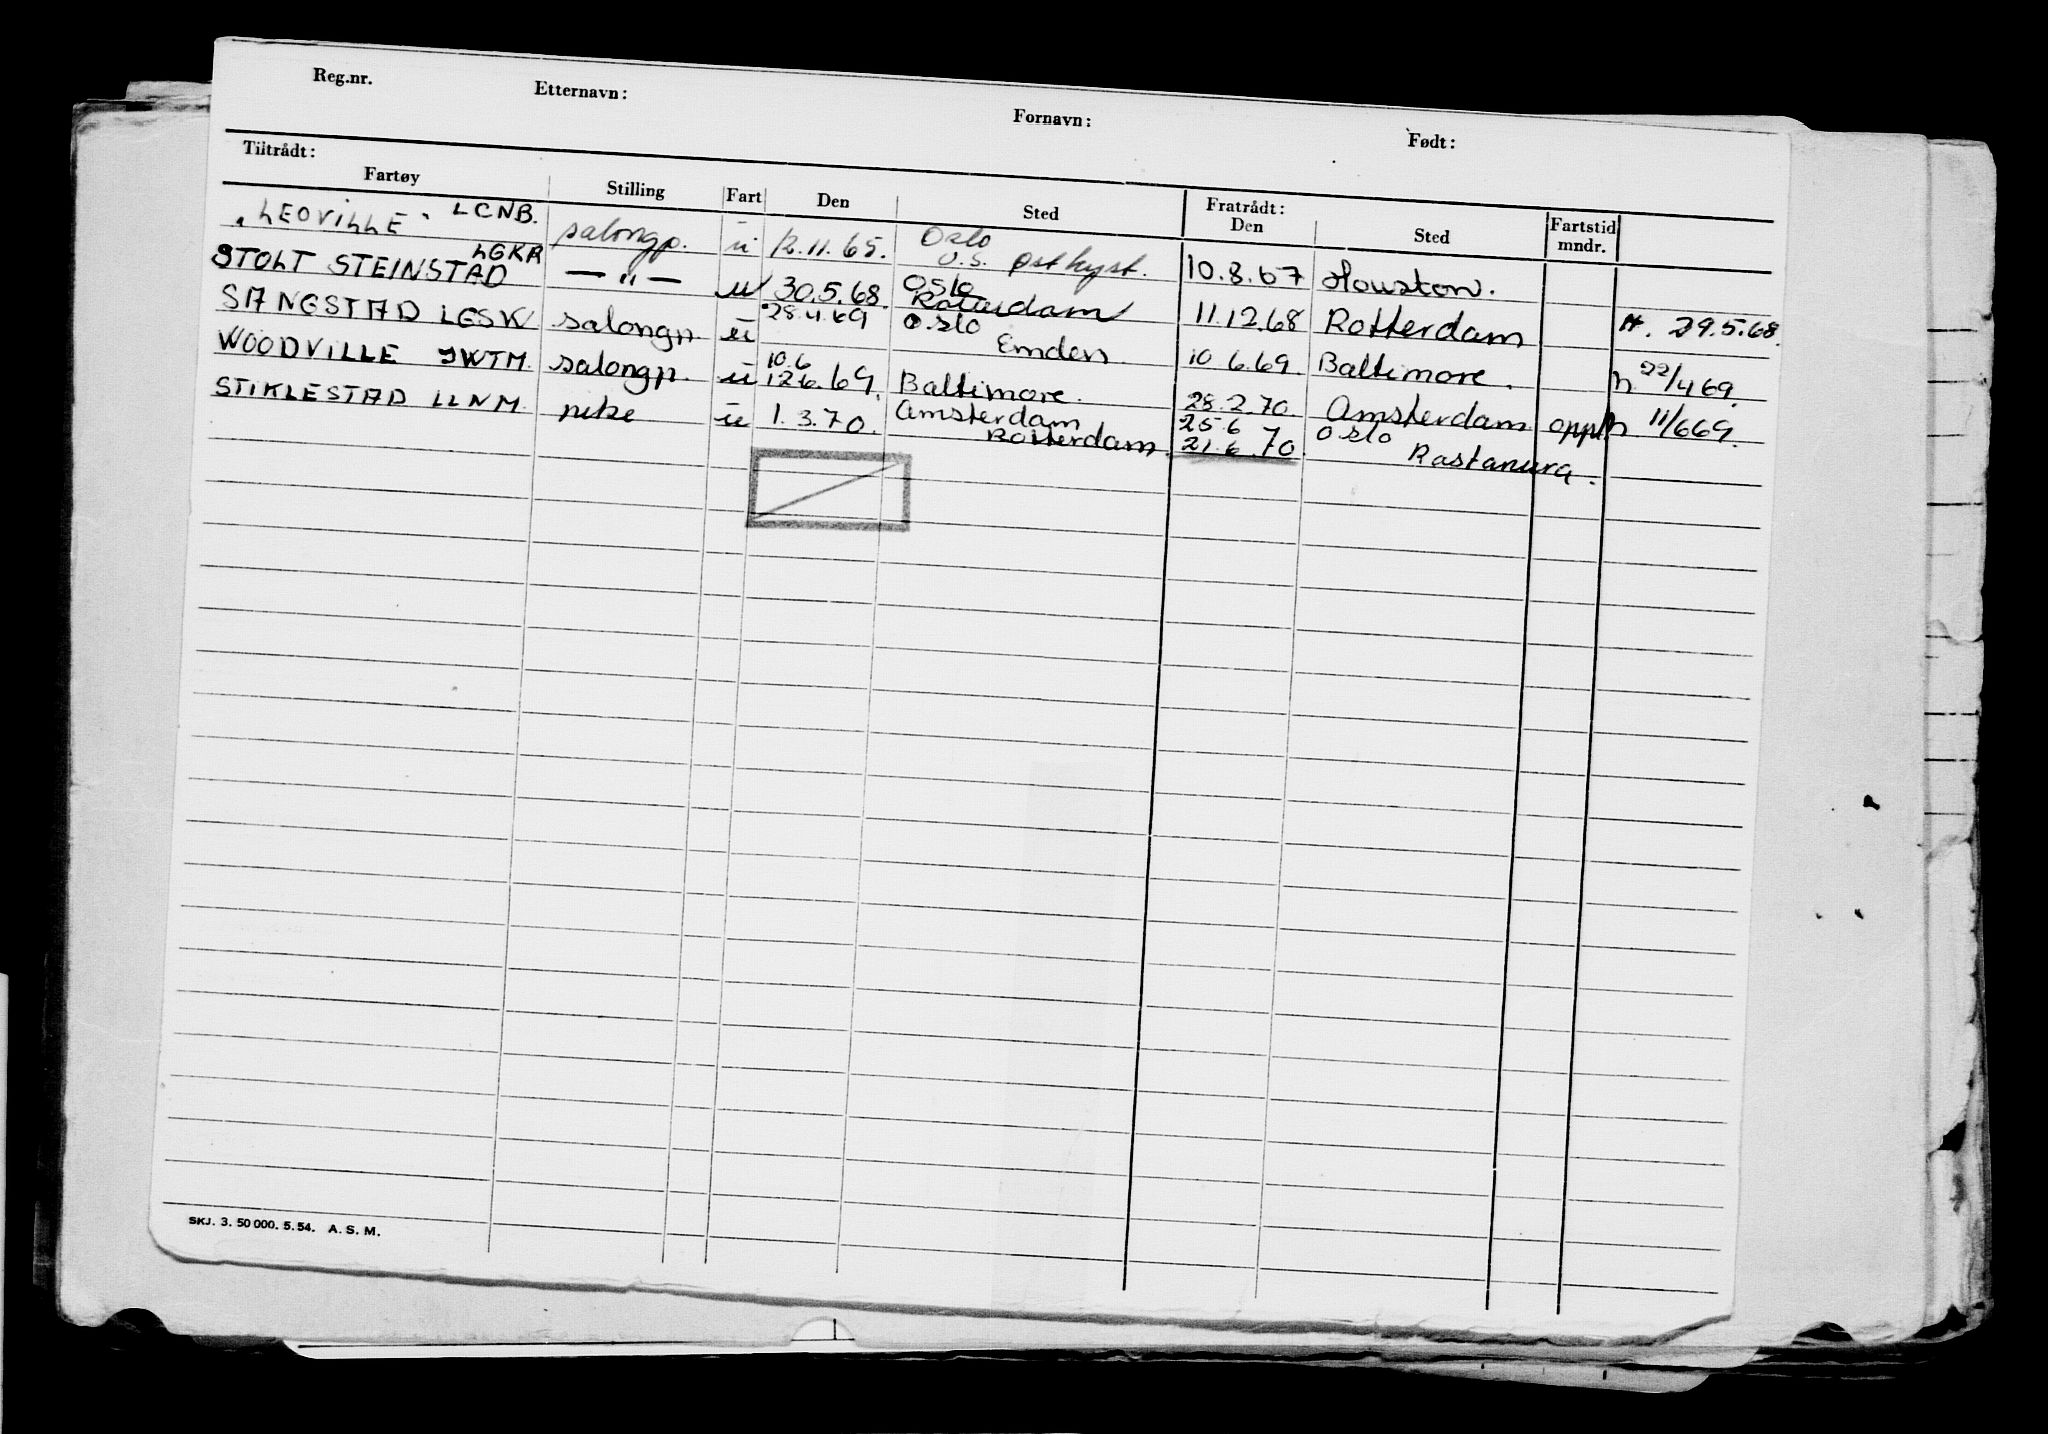 Reg.nr. Etternavn: Fornavn: Født:
Tiltrådt: Fratrådt:
Fartøy Stilling Fart Den Sted Den Sted Fartstid mndr.
"LEOVILLE" LCNB. salongp. u 12.11.65. Oslo U.S. østkyst. 10.8.67 Houston.
STOLT STEINSTAD LGKR — " — u 30.5.68 Oslo Rotterdam 11.12.68 Rotterdam H. 29.5.68.
SANGSTAD LGSK salongp. u 28.4.69 Oslo Emden 10.6.69. Baltimore. h 22/4 69.
WOODVILLE JWTM. salongp. u 10.6 12.6.69. Baltimore. 28.2.70. Amsterdam opph h 11/6 69.
STIKLESTAD LLNM. pike u 1.3.70. Amsterdam Rotterdam. 25.6 21.6.70. Oslo Rastanura.
SKJ. 3. 50 000. 5. 54. A. S. M.